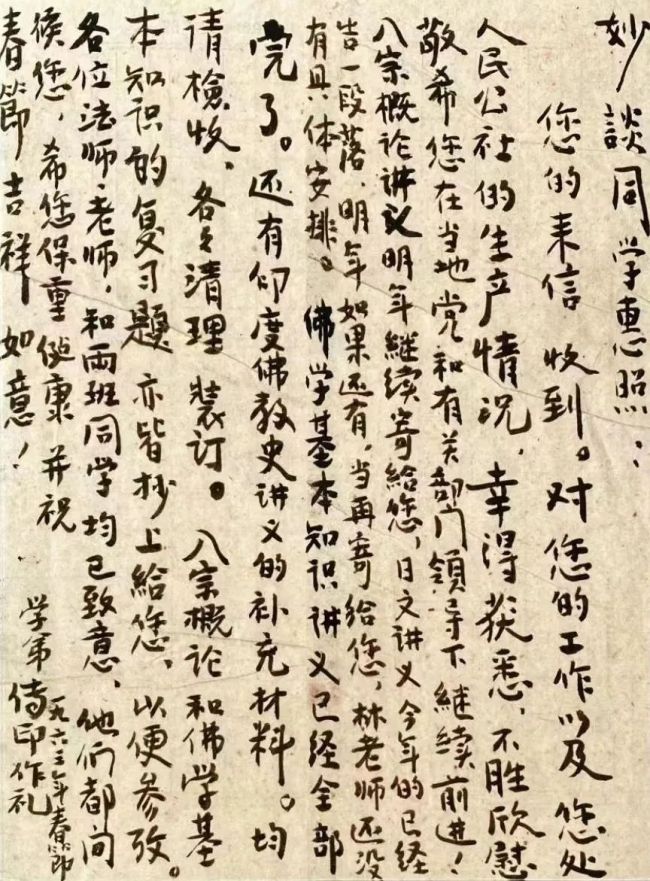 妙談同学惠照：
您的来信收到。对您的工作以及您处
人民公社的生产情况，幸得获悉，不胜欣慰
敬希您在当地党和有关部门領导下継续前进！
八宗概论讲义明年継续寄给您，日文讲义今年的已经
告一段落，明年如果还有，当再寄给您，林老师还没
有具体安排。佛学基本知识讲义已经全部
完了。还有印度佛教史讲义的补充材料。均
请檢收，各自清理装订。八宗概论和佛学基
本知识的复习题亦皆抄上給您，以便参攷。
各位法师、老师，和两班同学均已致意，他们都问
候您，希您保重健康并祝
春節吉祥如意！
学弟传印作礼
一九六三年春節